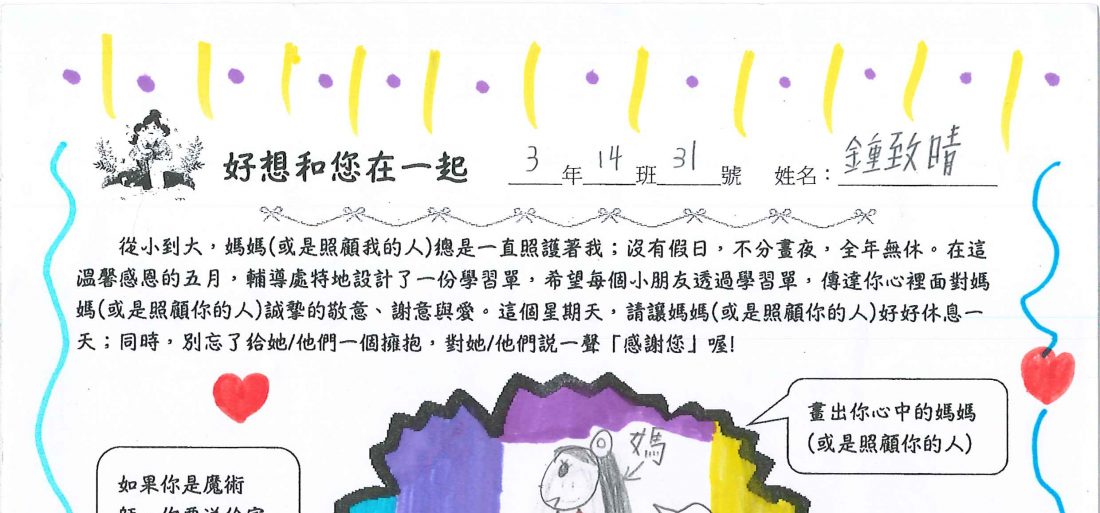 好想和您在一起 3年14班31號 姓名：鍾致晴
從小到大，媽媽(或是照顧我的人)總是一直照護著我；沒有假日，不分晝夜，全年無休。在這
溫馨感恩的五月，輔導處特地設計了一份學習單，希望每個小朋友透過學習單，傳達你心裡面對媽
媽(或是照顧你的人)誠摯的敬意、謝意與愛。這個星期天，請讓媽媽(或是照顧你的人)好好休息一
天；同時，別忘了給她/他們一個擁抱，對她/他們說一聲「感謝您」喔!
畫出你心中的媽媽
(或是照顧你的人)
媽
如果你是魔術